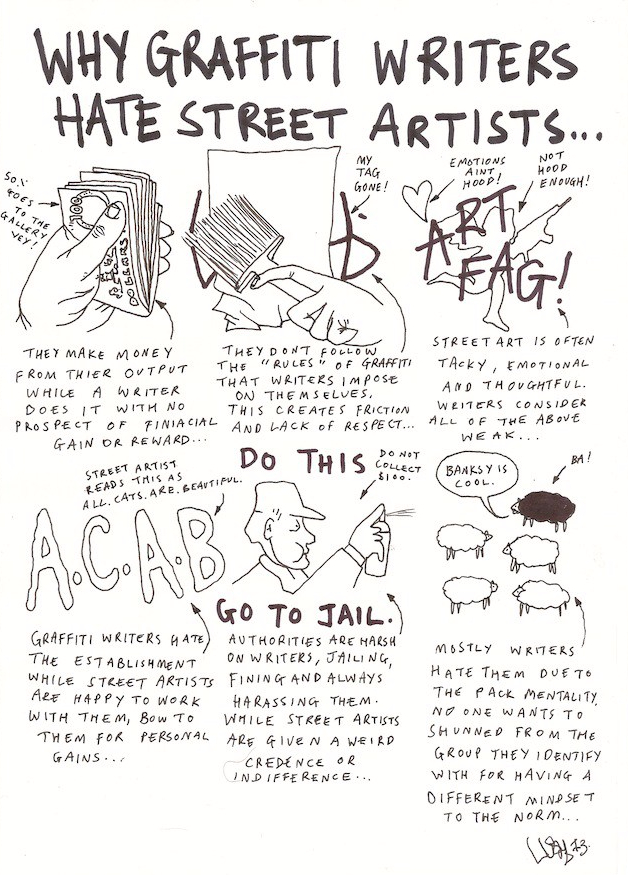 WHY GRAFFITI WRITERS
HATE STREET ARTISTS...
SO IT
GOES
TO THE
GALLERY
HEY!
100
DOLLARS
THEY MAKE MONEY
FROM THIER OUTPUT
WHILE A WRITER
DOES IT WITH NO
PROSPECT OF FINIACIAL
GAIN OR REWARD...
MY
TAG
GONE!
THEY DONT FOLLOW
THE "RULES" OF GRAFFITI
THAT WRITERS IMPOSE
ON THEMSELVES.
THIS CREATES FRICTION
AND LACK OF RESPECT...
EMOTIONS
AINT
HOOD!
NOT
HOOD
ENOUGH!
ART
FAG!
STREET ART IS OFTEN
TACKY, EMOTIONAL
AND THOUGHTFUL.
WRITERS CONSIDER
ALL OF THE ABOVE
WEAK...
STREET ARTIST
READS THIS AS
ALL.CATS.ARE.BEAUTIFUL.
A.C.A.B
GRAFFITI WRITERS HATE
THE ESTABLISHMENT
WHILE STREET ARTISTS
ARE HAPPY TO WORK
WITH THEM, BOW TO
THEM FOR PERSONAL
GAINS...
DO THIS
DO NOT
COLLECT
$100.
GO TO JAIL.
AUTHORITIES ARE HARSH
ON WRITERS, JAILING,
FINING AND ALWAYS
HARASSING THEM.
WHILE STREET ARTISTS
ARE GIVEN A WEIRD
CREDENCE OR
INDIFFERENCE...
BANKSY IS
COOL.
BA!
MOSTLY WRITERS
HATE THEM DUE TO
THE PACK MENTALITY,
NO ONE WANTS TO
SHUNNED FROM THE
GROUP THEY IDENTIFY
WITH FOR HAVING A
DIFFERENT MINDSET
TO THE NORM...